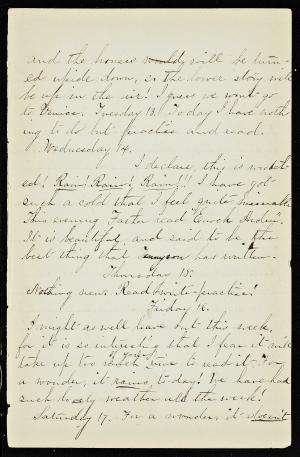 and the houses would, will be turn-
ed upside down, so the lower story will
be up in the air! I guess we wont go
to Venice. Tuesday 13. Today I have noth-
ing to do but practice and read.
Wednesday 14.
I declare, this is wretch-
ed! Rain! Rain! Rain!!! I have got
such a cold that I feel quite miserable.
This evening Foster read "Enoch Arden".
It is beautiful, and said to be the
best thing that Tennyson has written.
Thursday 15.
Nothing new. Read write practice!
Friday 16.
I might as well leave out this week,
for it is so interesting that I fear it will
take up too much of your time to read it. For
a wonder, it rains to day! We have had
such lovely weather all the week!
Saturday 17. For a wonder, it doesn't